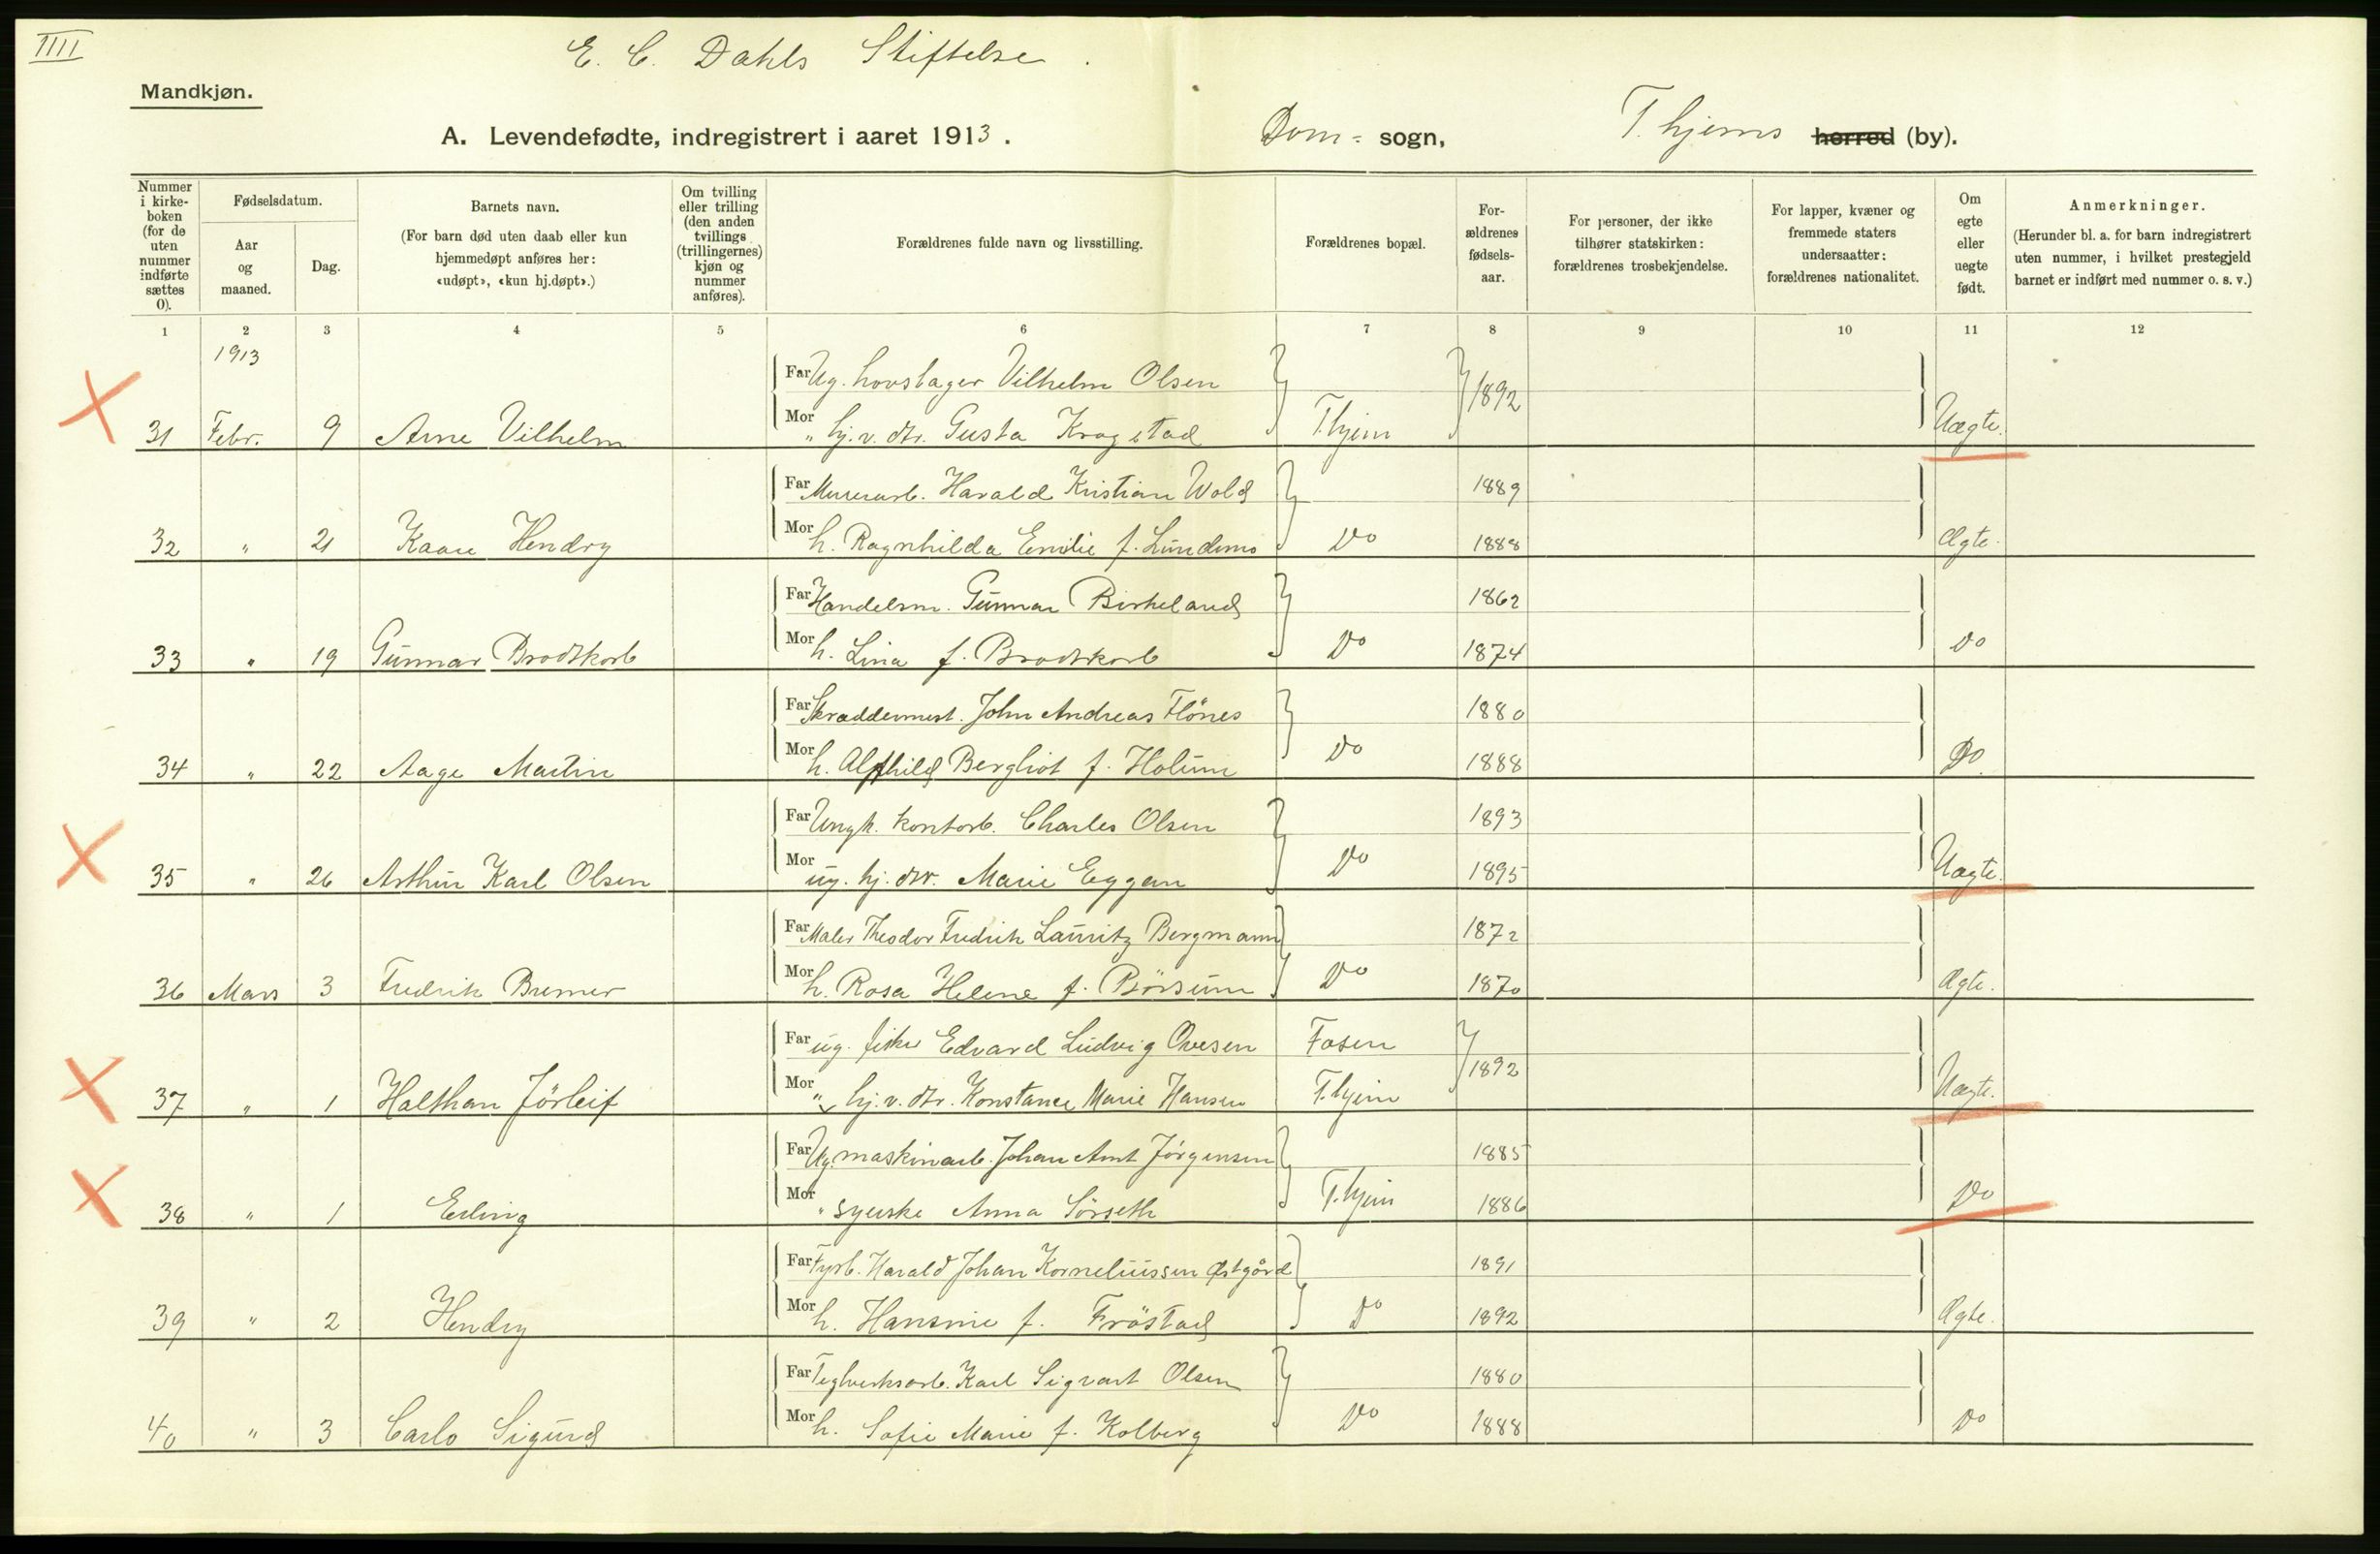 IIII
E. C. Dahls Stiftelse.
Mandkjøn.
A. Levendefødte, indregistrert i aaret 1913. Dom= sogn, T.hjems herred (by).
Nummer i kirke-boken (for de uten nummer indførte sættes 0).
Fødselsdatum.
Aar og maaned.
Dag.
Barnets navn. (For barn død uten daab eller kun hjemmedøpt anføres her: «udøpt», «kun hj.døpt».)
Om tvilling eller trilling (den anden tvillings (trillingernes) kjøn og nummer anføres).
Forældrenes fulde navn og livsstilling.
Forældrenes bopæl.
For-ældrenes fødsels-aar.
For personer, der ikke tilhører statskirken: forældrenes trosbekjendelse.
For lapper, kvæner og fremmede staters undersaatter: forældrenes nationalitet.
Om egte eller uegte født.
Anmerkninger. (Herunder bl. a. for barn indregistrert uten nummer, i hvilket prestegjeld barnet er indført med nummer o. s. v.)
1 2 3 4 5 6 7 8 9 10 11 12
1913
Far Ug. hovslager Vilhelm Olsen 1892
31 Febr. 9 Arne Vilhelm Mor " hj.v. dtr. Gusta Krogstad T.hjem Uægte.
Far Murerarb. Harald Kristian Wold 1889
32 " 21 Kaare Hendry Mor h. Ragnhilda Emilie f. Lundemo Do 1888 Ægte.
Far Handelsm. Gunnar Birkeland 1862
33 " 19 Gunnar Brodtkorb Mor h. Lina f. Brodtkorb Do 1874 Do
Far Skræddermest. John Andreas Flönes 1880
34 " 22 Aage Martin Mor h. Alfhild Bergliot f. Holum Do 1888 Do.
Far Ungk. kontorb. Charles Olsen 1893
35 " 26 Arthur Karl Olsen Mor ug. hj. dtr. Marie Eggan Do 1895 Uægte.
Far Maler Theodor Fredrik Lauritz Bergmann 1872
36 Mars 3 Fredrik Bremer Mor h. Rosa Helene f. Börsum Do 1870 Ægte.
Far ug. fisker Edvard Ludvig Ovesen Fosen 1892
37 " 1 Halfhan Jörleif Mor " hj.v. dtr. Konstance Marie Hansen T.hjem Uægte.
Far Ug. maskinarb. Johan Arnt Jörgensen 1885
38 " 1 Erling Mor " syerske Anna Sörseth T.hjem 1886 Do
Far Fyrb. Harald Johan Korneliussen Østgård 1891
39 " 2 Hendry Mor h. Hansine f. Fröstad Do 1892 Ægte.
Far Teglverksarb. Karl Sigvart Olsen 1880
40 " 3 Carlo Sigurd Mor h. Sofie Marie f. Kolberg Do 1888 Do